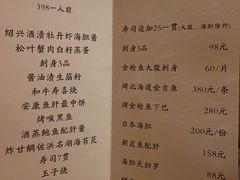 398一人前
绍兴酒渍牡丹虾海胆酱
松叶蟹肉白籽蒸蛋
刺身3品
酱油渍生筋籽
和牛寿喜烧
安康鱼肝最中饼
烤喉黑鱼
酒蒸鲍鱼配肝酱
炸甘鲷佐浜名湖海苔芡
寿司7贯
玉子烧
寿司追加25一贯(大腹、海胆除外)
刺身3品 98元
金枪鱼大腹刺身 60/片
烤北海道金吉鱼 380元/条
烤金枪鱼下巴 280元
日本海胆 200元/份
剥皮鱼配肝 158元
海胆天妇罗 88元